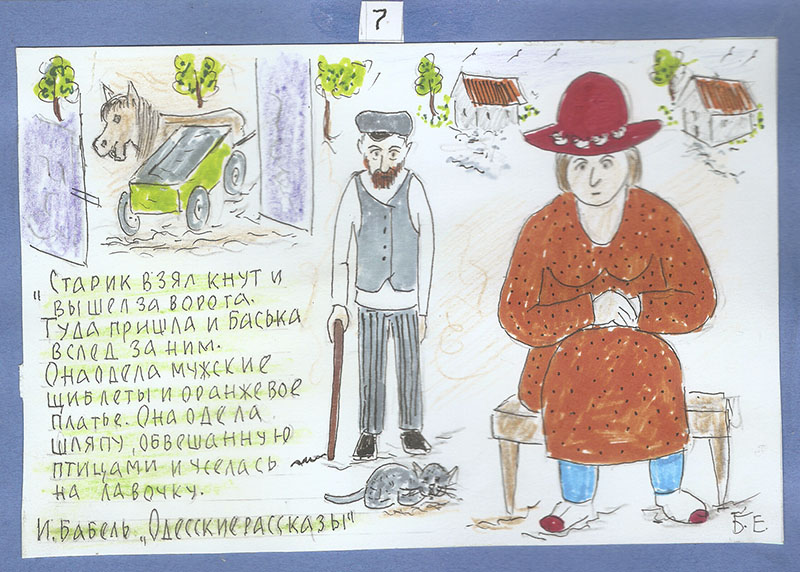 7
"Старик взял кнут и
вышел за ворота.
Туда пришла и Баська
вслед за ним.
Она одела мужские
щиблеты и оранжевое
платье. Она одела
шляпу, обвешанную
птицами и уселась
на лавочку.
И. Бабель „Одесские рассказы"
Б. Е.